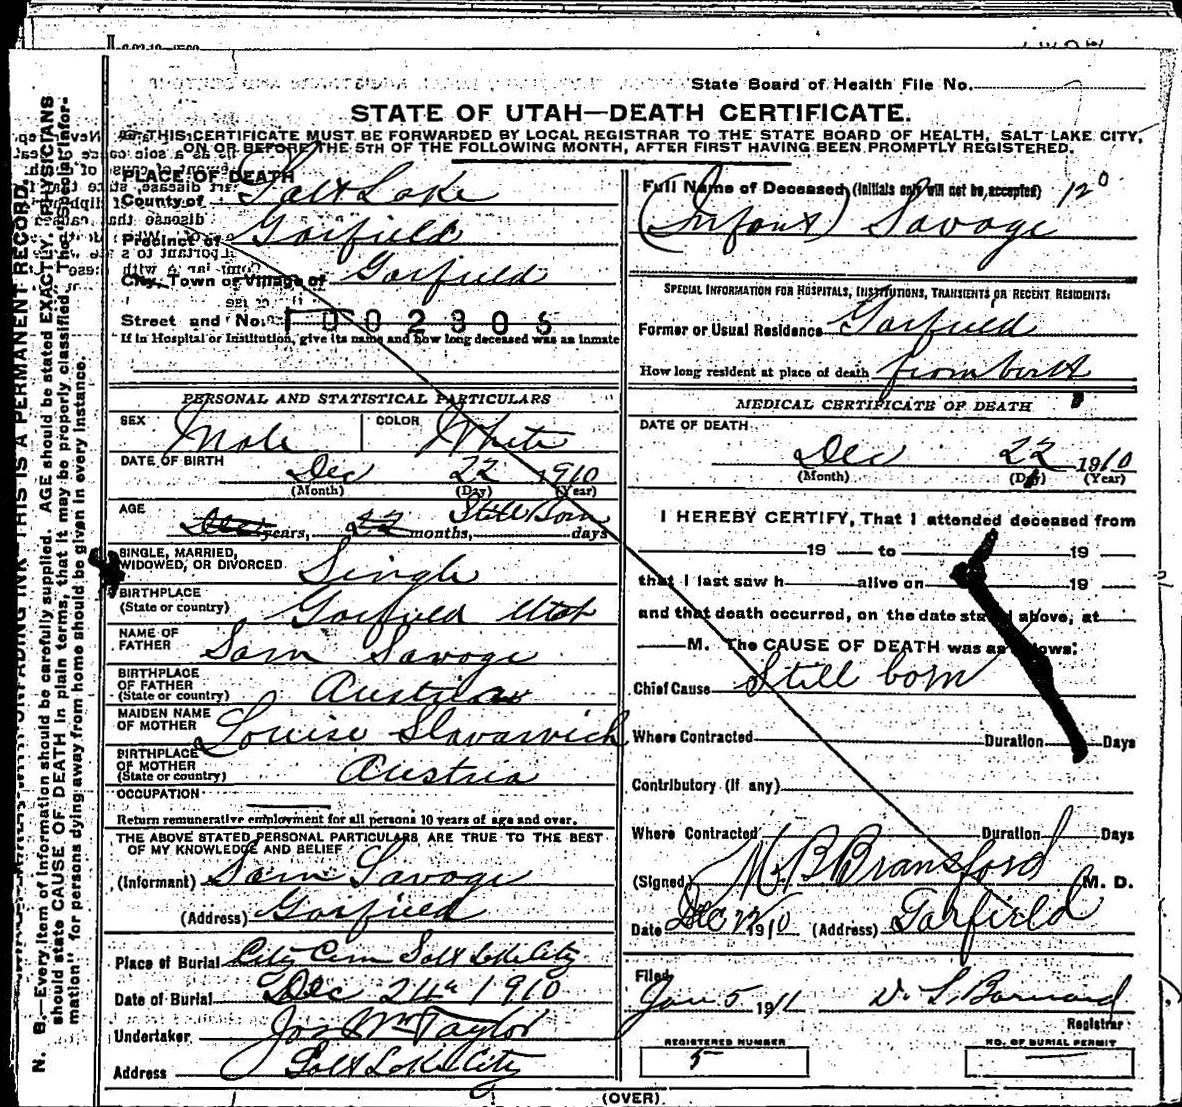 State Board of Health File No.
STATE OF UTAH—DEATH CERTIFICATE.
THIS CERTIFICATE MUST BE FORWARDED BY LOCAL REGISTRAR TO THE STATE BOARD OF HEALTH, SALT LAKE CITY,
ON OR BEFORE THE 5TH OF THE FOLLOWING MONTH, AFTER FIRST HAVING BEEN PROMPTLY REGISTERED.
PLACE OF DEATH
County of Salt Lake
Precinct of Garfield
City, Town or Village of Garfield
Street and No.
1002305
If in Hospital or Institution, give its name and how long deceased was an inmate
PERSONAL AND STATISTICAL PARTICULARS
SEX Male COLOR White
DATE OF BIRTH Dec 22 1910
(Month) (Day) (Year)
Still Born
AGE years, 22 months, days
SINGLE, MARRIED,
WIDOWED, OR DIVORCED Single
BIRTHPLACE
(State or country) Garfield Utah
NAME OF
FATHER Sam Savage
BIRTHPLACE
OF FATHER
(State or country) Austria
MAIDEN NAME
OF MOTHER Louise Slavarvich
BIRTHPLACE
OF MOTHER
(State or country) Austria
OCCUPATION
Return remunerative employment for all persons 10 years of age and over.
THE ABOVE STATED PERSONAL PARTICULARS ARE TRUE TO THE BEST
OF MY KNOWLEDGE AND BELIEF
(Informant) Sam Savage
(Address) Garfield
Place of Burial City Cem Salt Lake City
Date of Burial Dec 24th 1910
Undertaker Jos Wm Taylor
Address Salt Lake City
Full Name of Deceased (Initials only will not be accepted) 120
(Infant) Savage
SPECIAL INFORMATION FOR HOSPITALS, INSTITUTIONS, TRANSIENTS OR RECENT RESIDENTS:
Former or Usual Residence Garfield
How long resident at place of death from birth
MEDICAL CERTIFICATE OF DEATH
DATE OF DEATH
Dec 22 1910
(Month) (Day) (Year)
I HEREBY CERTIFY, That I attended deceased from
19 to 19
that I last saw h alive on 19
and that death occurred, on the date stated above, at
M. The CAUSE OF DEATH was as follows:
Chief Cause Still born
Where Contracted Duration Days
Contributory (If any)
Where Contracted Duration Days
(Signed) N. B. Bransford M. D.
Date Dec 22 1910 (Address) Garfield
Filed
Jan 5 1911 W. L. Barnard
Registrar
REGISTERED NUMBER
5
NO. OF BURIAL PERMIT
(OVER)
N. B.—Every item of information should be carefully supplied. AGE should be stated EXACTLY. PHYSICIANS
should state CAUSE OF DEATH in plain terms, that it may be properly classified. The "Special Infor-
mation" for persons dying away from home should be given in every instance.
THIS IS A PERMANENT RECORD.